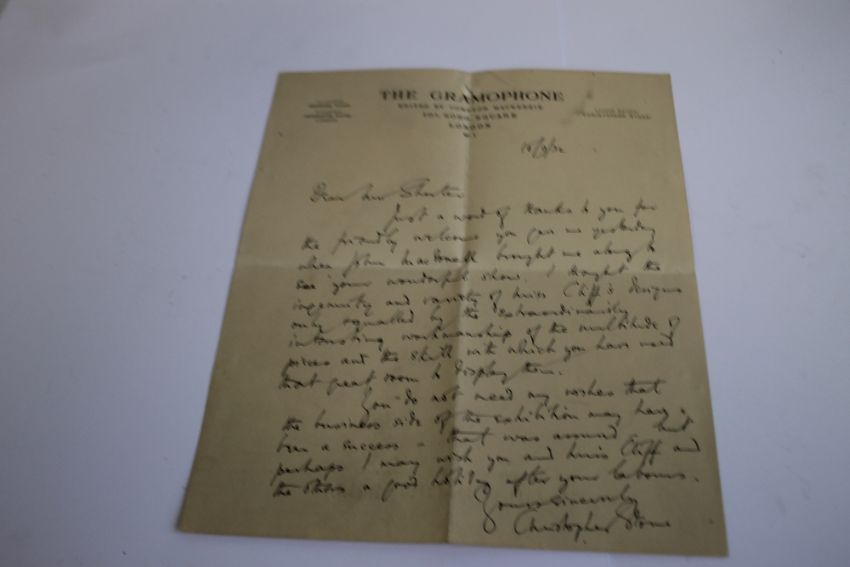 THE GRAMOPHONE
EDITED BY COMPTON MACKENZIE
101 SOHO SQUARE
LONDON
W.1
CHRISTOPHER STONE
10/9/32
Dear Mr Shorter
Just a word of thanks to you for
the friendly welcome you gave me yesterday
when John MacDonell brought me along to
see your wonderful show. I thought the
ingenuity and variety of Miss Cliff's designs
only equalled by the extraordinarily
interesting workmanship of the multitude of
pieces and the skill with which you have used
that great room to display them.
You do not need my wishes that
the business side of the exhibition may have
been a success – that was assured but
perhaps I may wish you and Miss Cliff and
the others a good holiday after your labours.
Yours sincerely
Christopher Stone